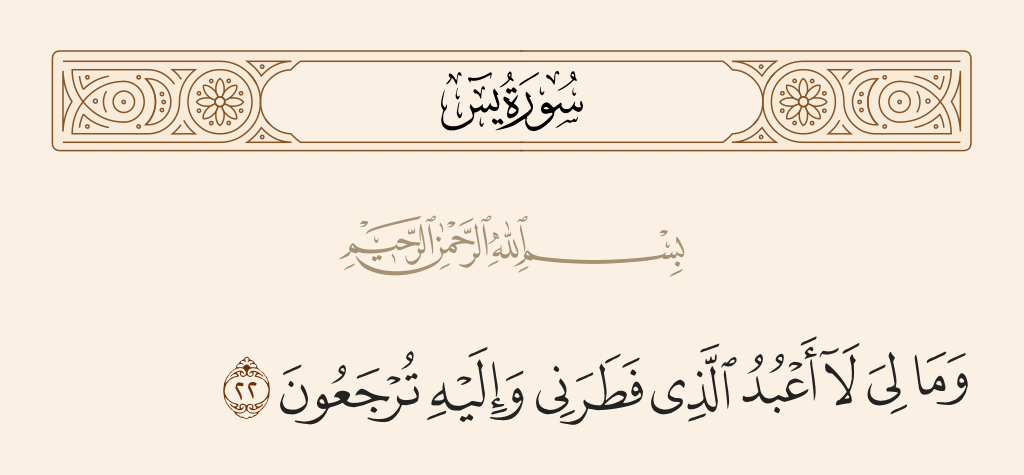 سُورَةُ يسٓ
بِسْمِ ٱللَّهِ ٱلرَّحْمَٰنِ ٱلرَّحِيمِ
وَمَا لِىَ لَآ أَعْبُدُ ٱلَّذِى فَطَرَنِى وَإِلَيْهِ تُرْجَعُونَ ٢٢